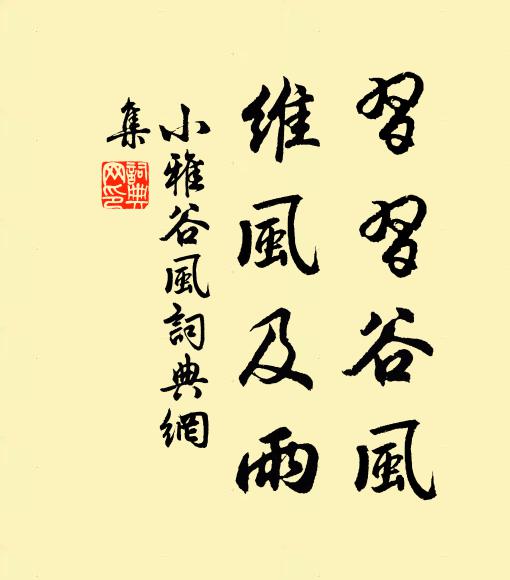 習習谷風
維風及雨
小雅谷風詞典網
集
詞典
网印